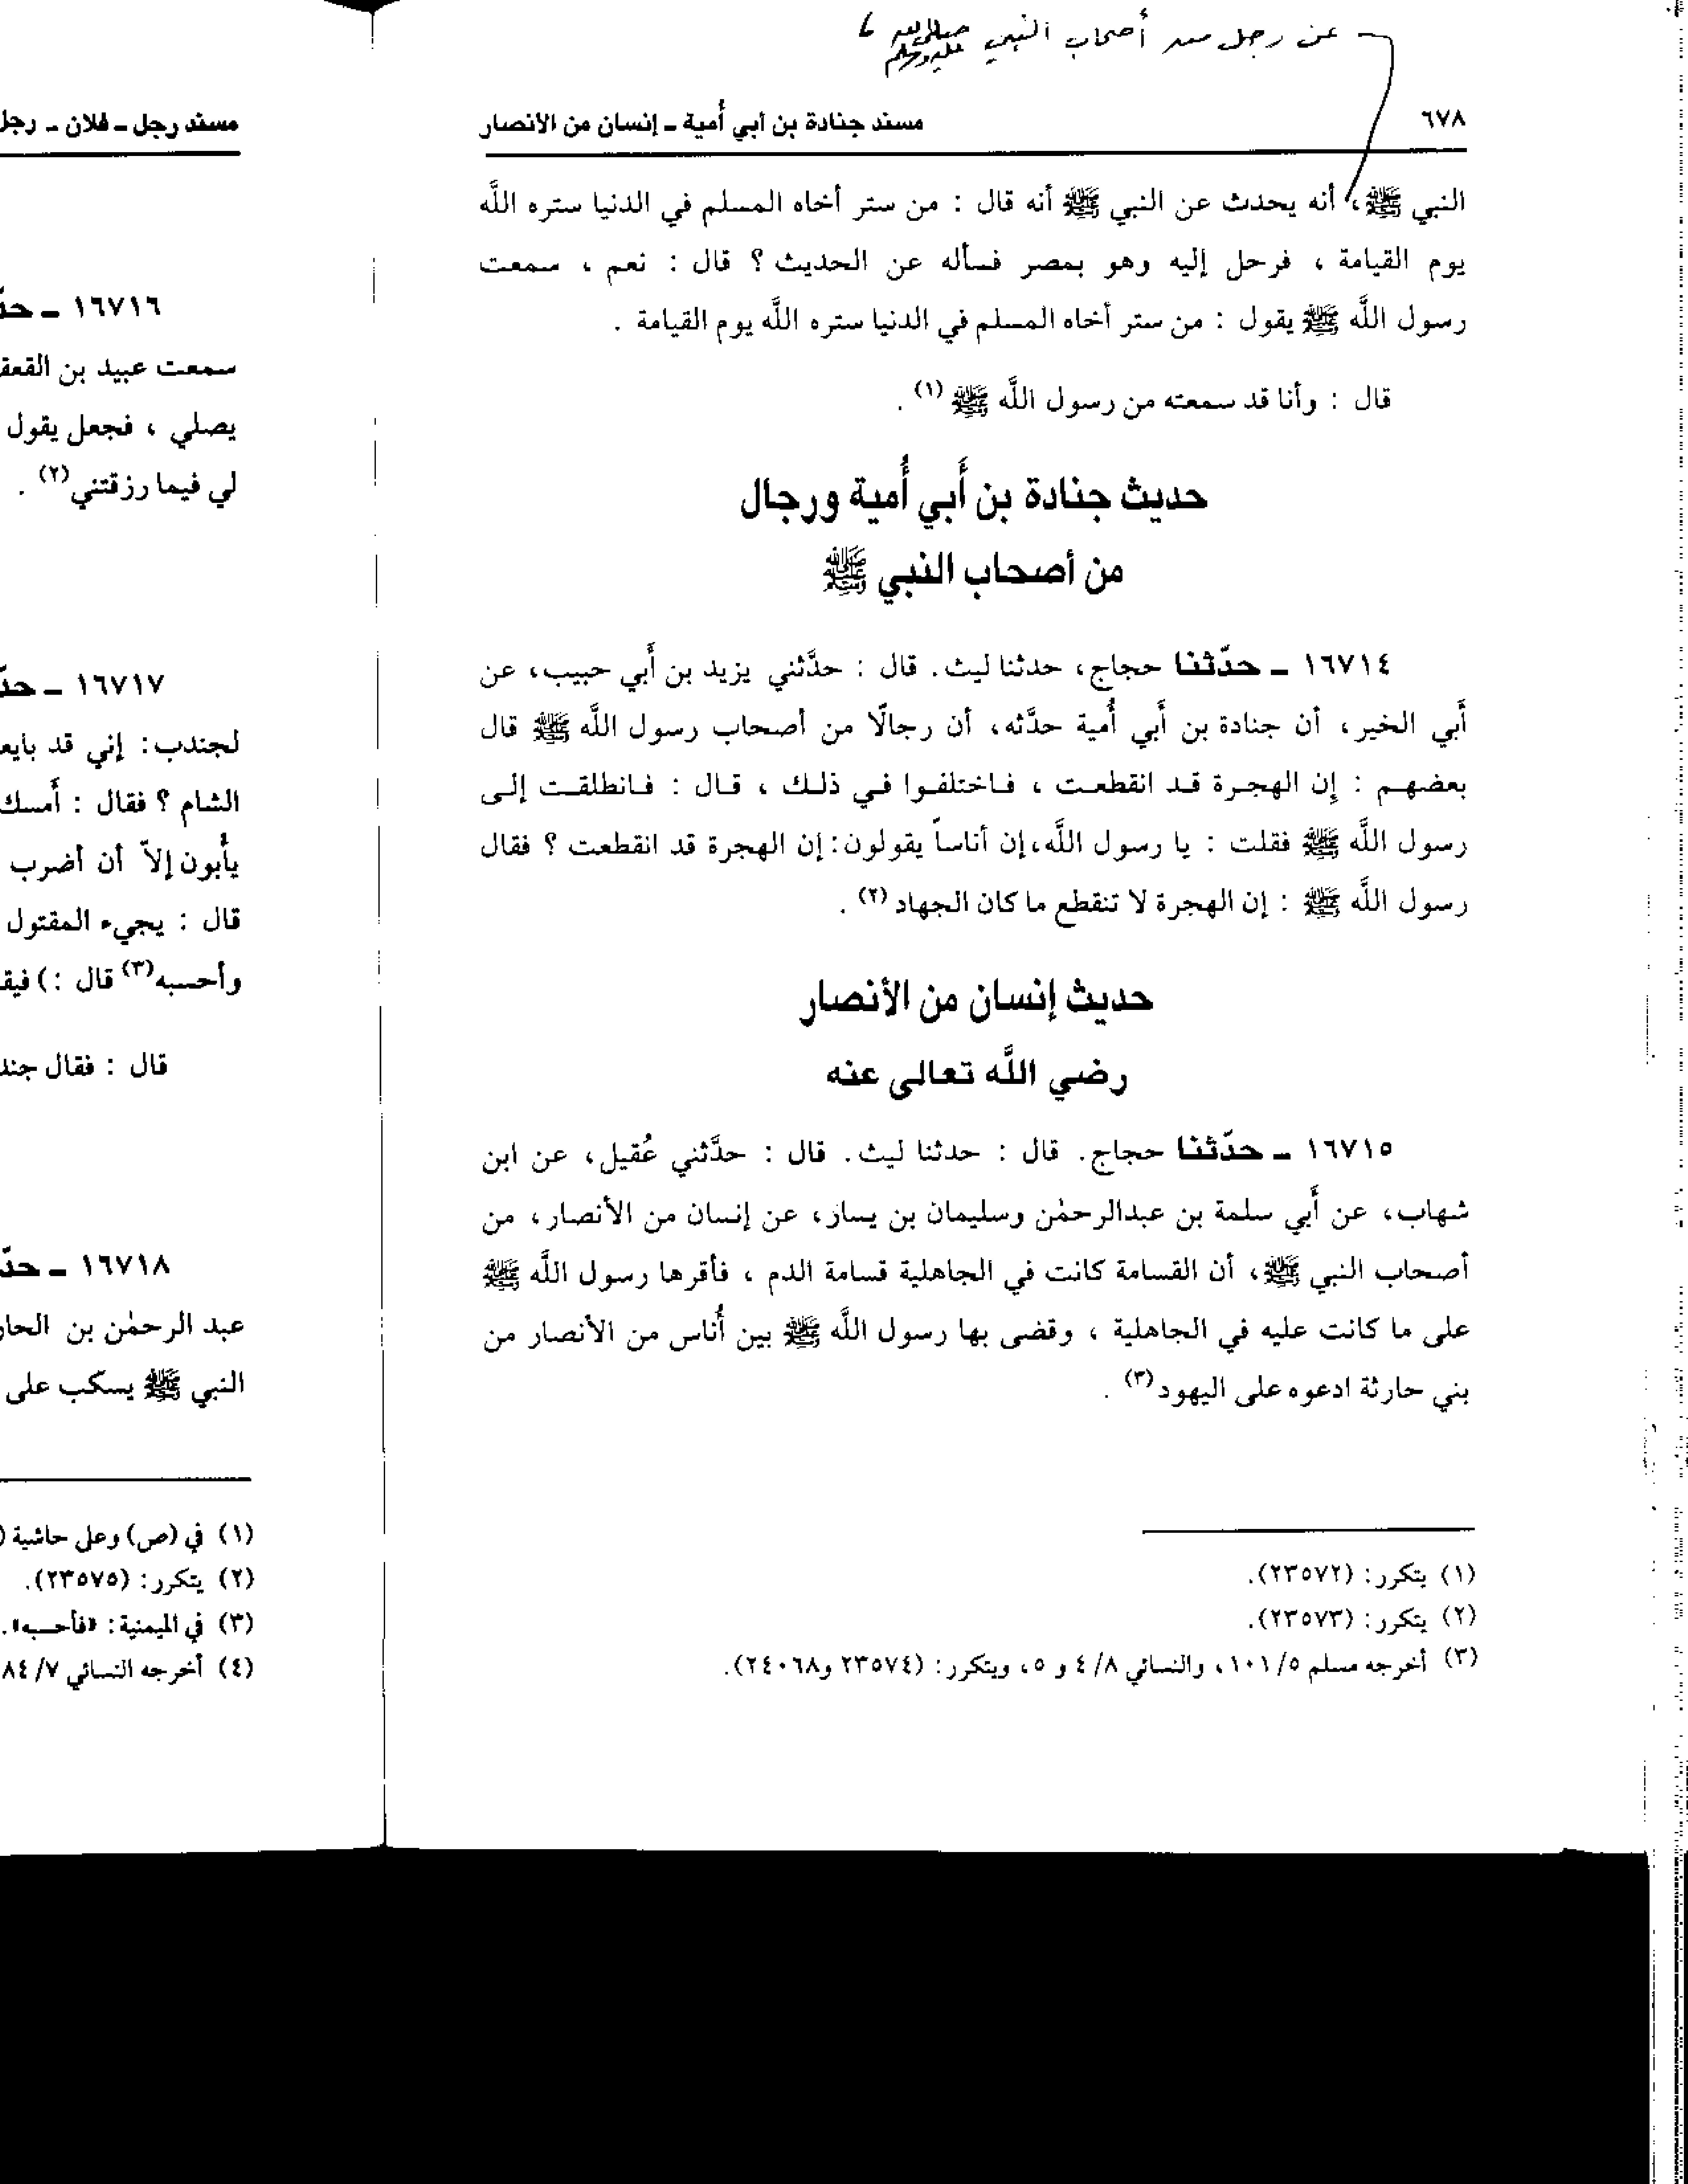 عن رجل من أصحاب النبي صلى الله عليه وسلم ،
٦٧٨
مسند جنادة بن أبي أُمية ـ إنسان من الأنصار
النبي ﷺ، أنه يحدث عن النبي ﷺ أنه قال : من ستر أخاه المسلم في الدنيا ستره اللَّه
يوم القيامة ، فرحل إليه وهو بمصر فسأله عن الحديث ؟ قال : نعم ، سمعت
رسول اللَّه ﷺ يقول : من ستر أخاه المسلم في الدنيا ستره اللَّه يوم القيامة .
قال : وأنا قد سمعته من رسول اللَّه ﷺ (١) .
حديث جنادة بن أَبي أُمية ورجال
من أصحاب النبي ﷺ
١٦٧١٤ ـ حدّثنا حجاج، حدثنا ليث. قال : حدَّثني يزيد بن أَبي حبيب، عن
أَبي الخير، أن جنادة بن أَبي أُمية حدَّثه، أن رجالًا من أصحاب رسول اللَّه ﷺ قال
بعضهم : إن الهجرة قد انقطعت ، فاختلفوا في ذلك ، قال : فانطلقت إلى
رسول اللَّه ﷺ فقلت : يا رسول اللَّه،إن أناساً يقولون:إن الهجرة قد انقطعت ؟ فقال
رسول اللَّه ﷺ : إن الهجرة لا تنقطع ما كان الجهاد (٢) .
حديث إنسان من الأنصار
رضي اللَّه تعالى عنه
١٦٧١٥ ـ حدّثنا حجاج. قال : حدثنا ليث. قال : حدَّثني عُقيل، عن ابن
شهاب، عن أَبي سلمة بن عبدالرحمٰن وسليمان بن يسار، عن إنسان من الأنصار، من
أصحاب النبي ﷺ، أن القسامة كانت في الجاهلية قسامة الدم ، فأقرها رسول اللَّه ﷺ
على ما كانت عليه في الجاهلية ، وقضى بها رسول اللَّه ﷺ بين أُناس من الأنصار من
بني حارثة ادعوه على اليهود (٣) .
(١) يتكرر: (٢٣٥٧٢).
(٢) يتكرر: (٢٣٥٧٣).
(٣) أخرجه مسلم ٥/ ١٠١، والنسائي ٨/ ٤ و ٥، ويتكرر: (٢٣٥٧٤ و٢٤٠٦٨).
مسند رجل ـ فلان ـ رجل
١٦٧١٦ ـ
سمعت عبيد بن
يصلي ، فجعل يقول
لي فيما رزقتني(٢) .
١٦٧١٧ ـ
لجندب: إني قد
الشام ؟ فقال : أَمسك
يأُبون إلاّ أن أضرب
قال : يجيء المقتول
وأحسبه(٣) قال :)
قال : فقال
١٦٧١٨ ـ
عبد الرحمٰن بن
النبي ﷺ يسكب على
(١) في (ص) وعلى حاشية (
(٢) يتكرر: (٢٣٥٧٥).
(٣) في الميمنية: «فأحسبه».
(٤) أخرجه النسائي ٧/ ٨٤